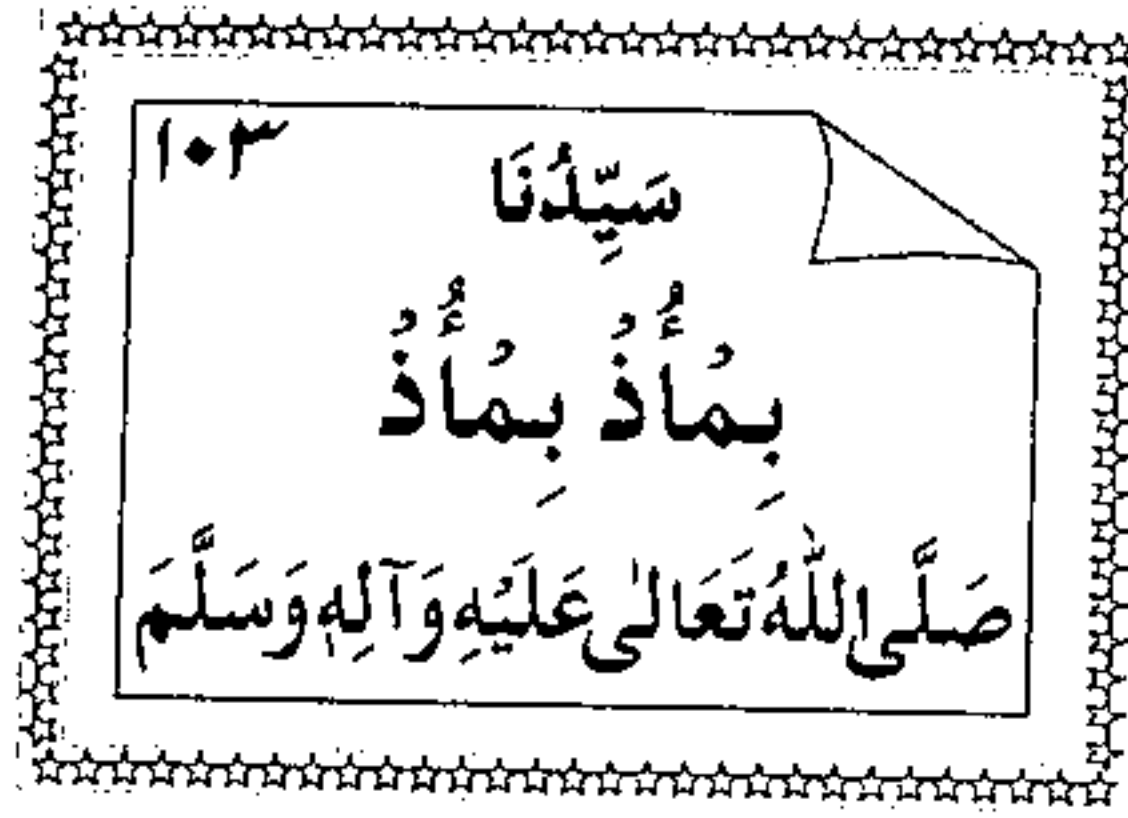 ۱۰۳
سَيِّدُنَا
بِمُأُذُ بِمُأُذُ
صَلَّى اللّٰهُ تَعَالٰى عَلَيْهِ وَآلِهٖ وَسَلَّمَ